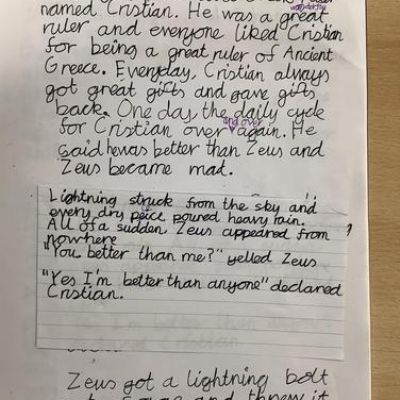 named Cristian. He was a great
ruler and everyone liked Cristian
for being a great ruler of Ancient
Greece. Everyday, Cristian always
got great gifts and gave gifts
back. One day the daily cycle
for Cristian over and over again. He
said hewas better than Zeus and
Zeus became mad.
Lightning struck from the sky and
every dry peice poured heavy rain.
All of a sudden Zeus appeared from
nowhere,
"You better than me?" yelled Zeus
"Yes I'm better than anyone" declared
Cristian.
Zeus got a lightning bolt
and threw it